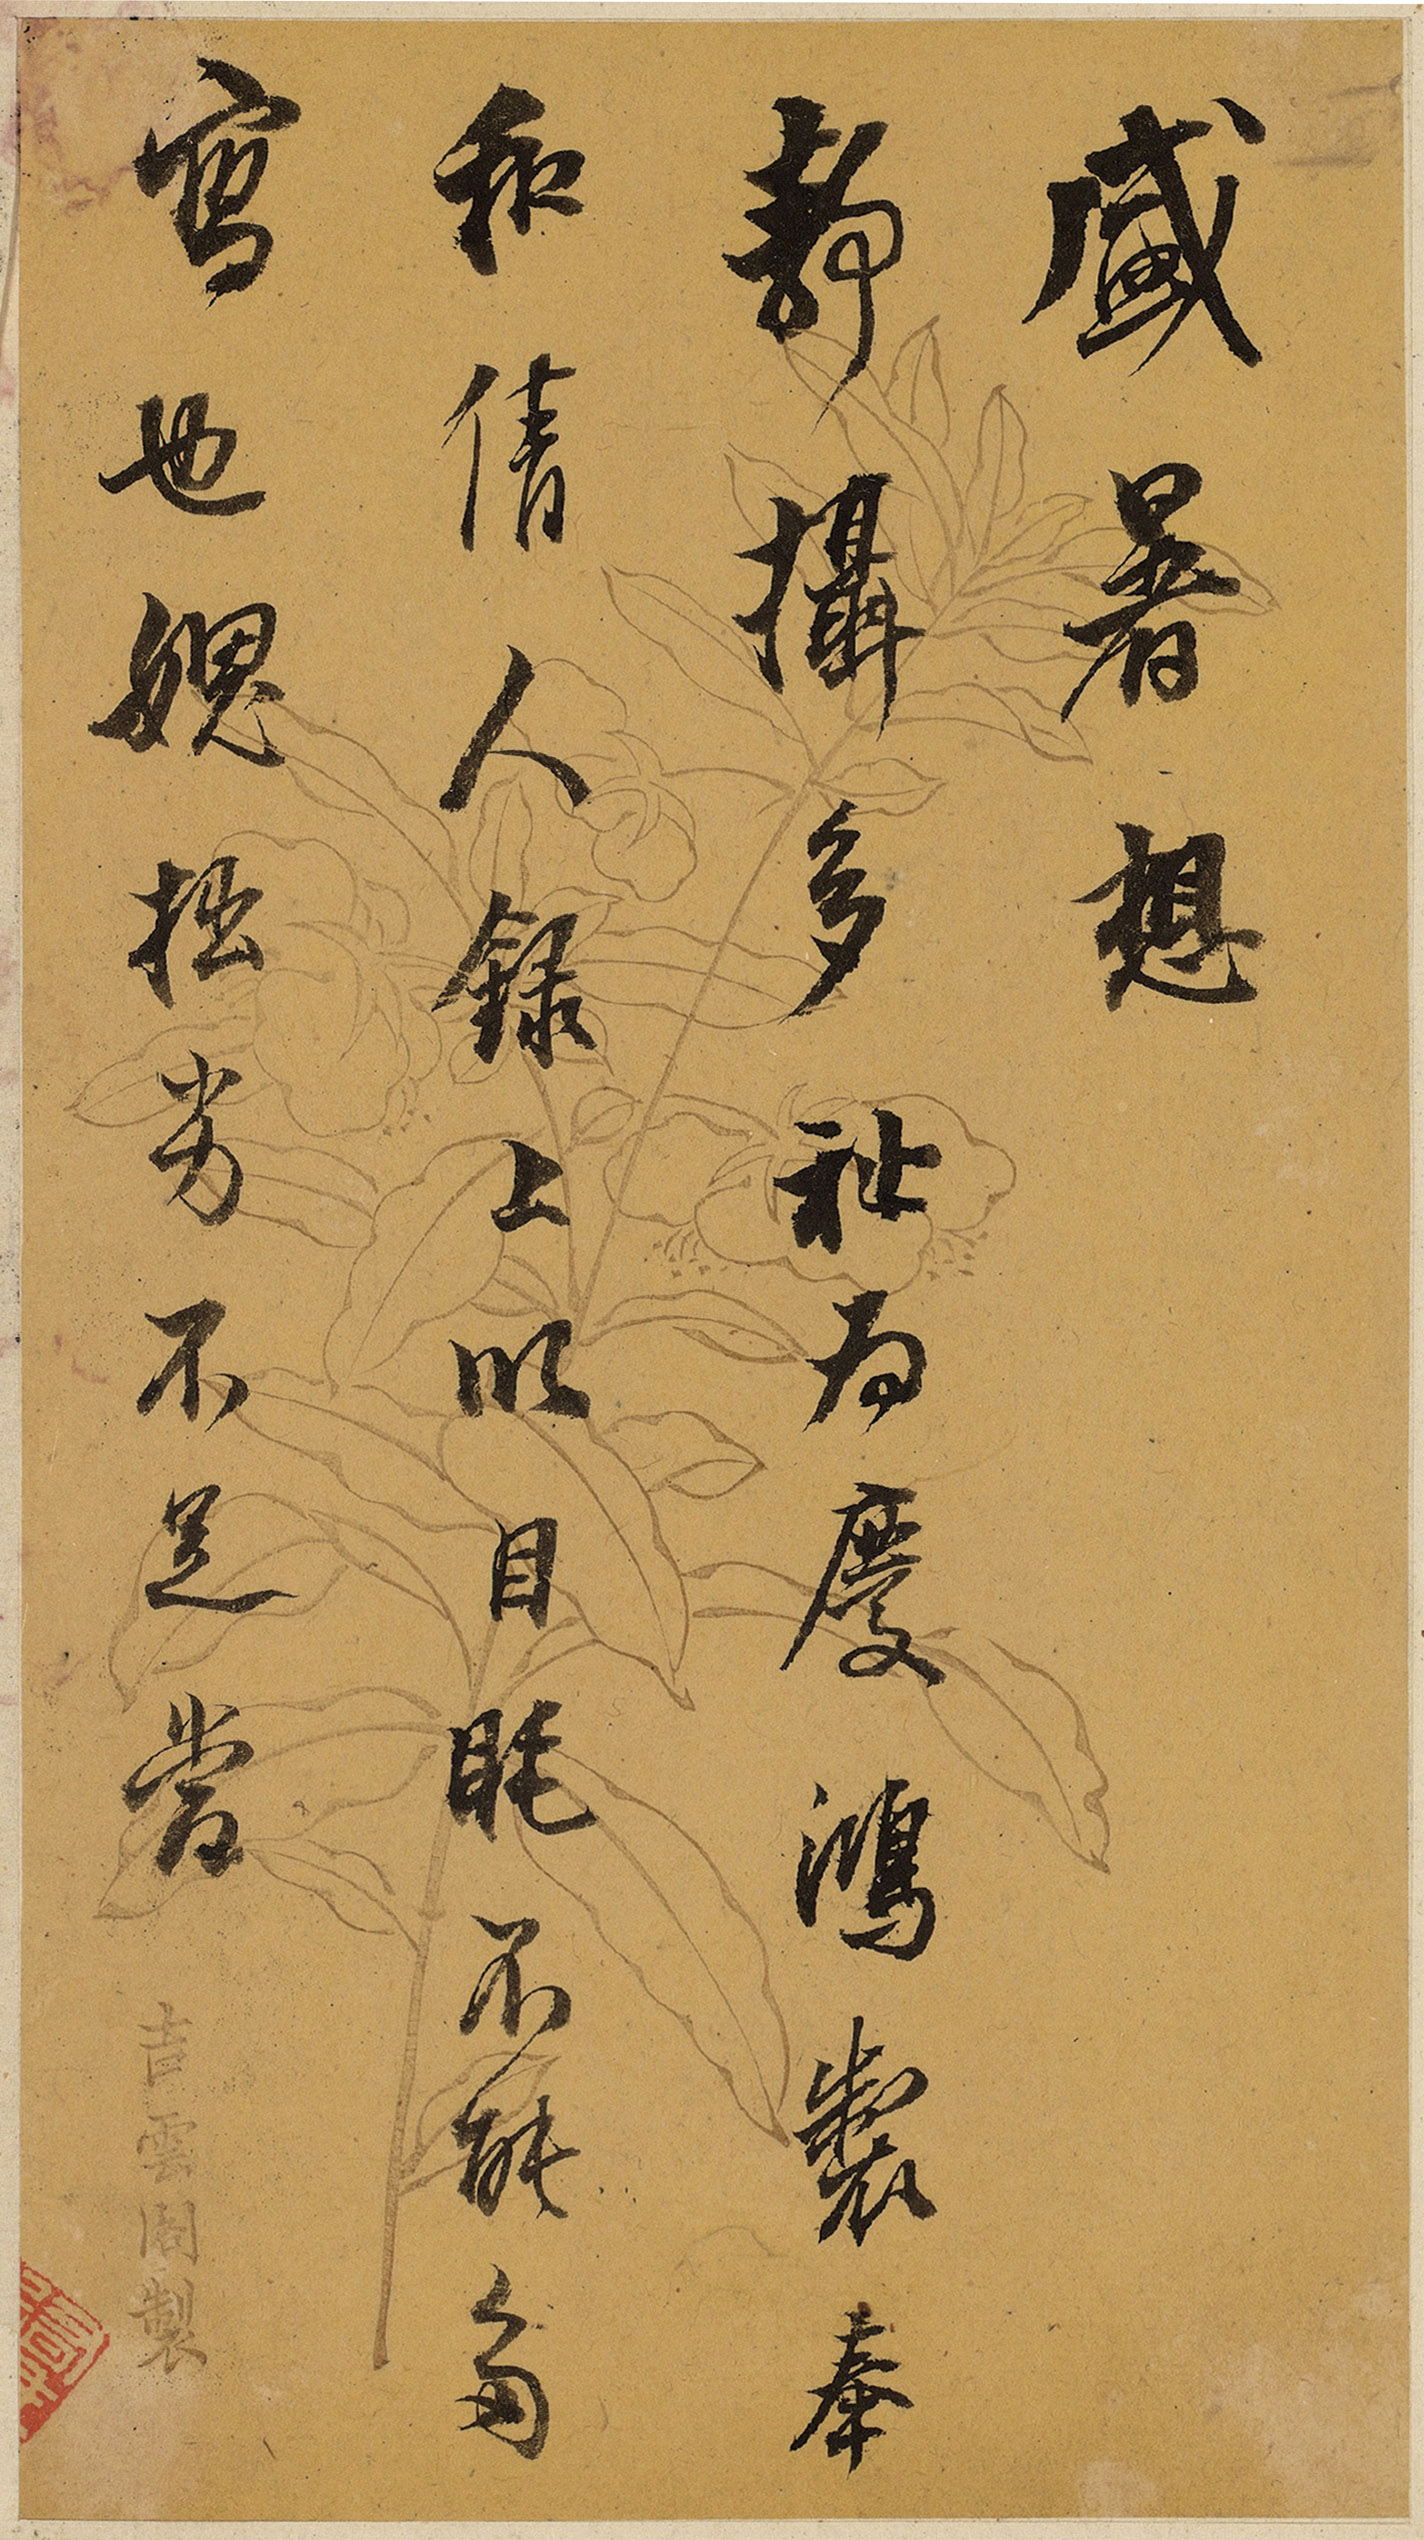 盛暑想
靜攝多祉为慶鴻製奉
和倩人錄上以目眊不能多
寫也媿拙劣不足當
青雲閣製